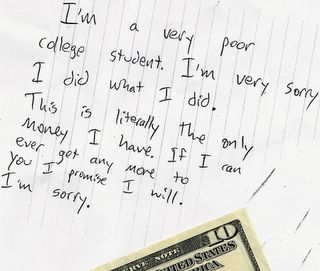 I'm a very poor
college student. I'm very sorry
I did what I did.
This is literally the only
money I have. If I can
ever get any more to
you I promise I will.
I'm sorry.
RVE NOTE
10
UNITED STATES
AMERICA